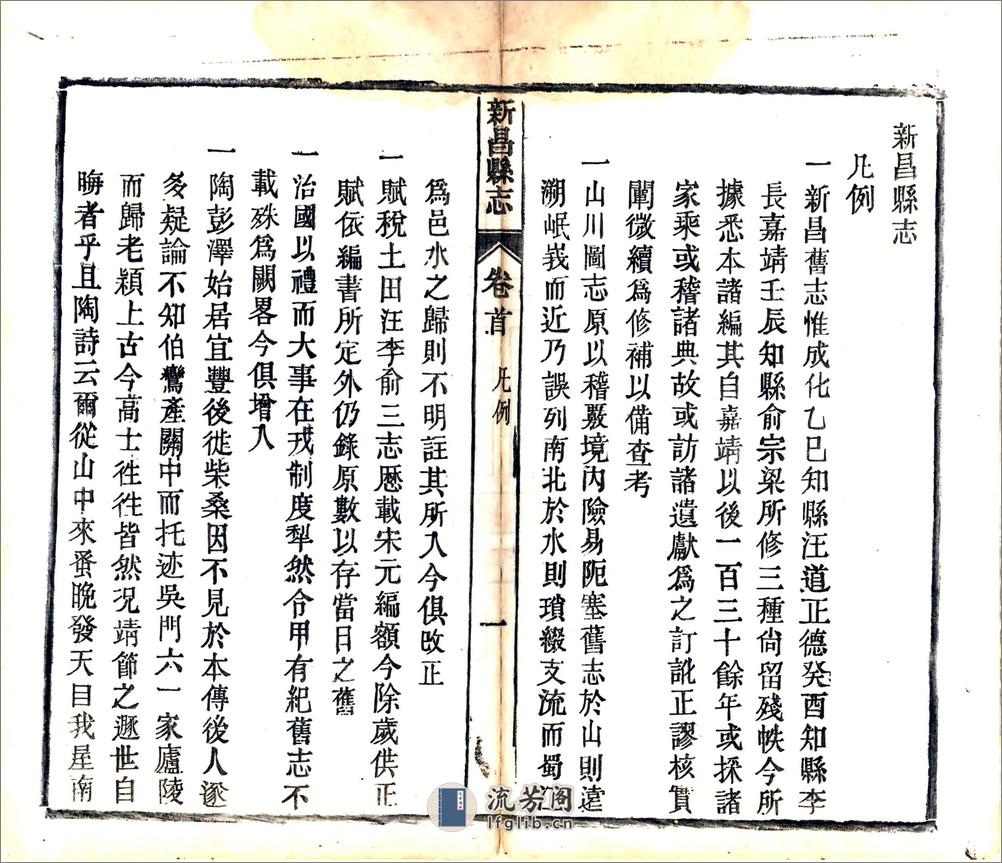 新昌縣志
凡例
一新昌舊志惟成化乙巳知縣汪道正德癸酉知縣李
長嘉靖壬辰知縣俞宗梁所修三種尙留殘帙今所
據悉本諸編其自嘉靖以後一百三十餘年或採諸
家乘或稽諸典故或訪諸遺獻爲之訂訛正謬核實
闡微續爲修補以備查考
一山川圖志原以稽覈境內險易阨塞舊志於山則遠
溯岷峩而近乃誤列南北於水則瑣綴支流而蜀
新昌縣志
卷首
凡例
一
爲邑水之歸則不明註其所入今俱改正
一賦稅土田汪李俞三志歷載宋元編額今除歲供正
賦依編書所定外仍錄原數以存當日之舊
一治國以禮而大事在戎制度犁然令甲有紀舊志不
載殊爲闕畧今俱增入
一陶彭澤始居宜豐後徙柴桑因不見於本傳後人遂
多疑論不知伯鸞產關中而托迹吳門六一家廬陵
而歸老潁上古今高士徃徃皆然況靖節之遯世自
晦者乎且陶詩云爾從山中來蚤晚發天目我屋南
流芳阁
lfglib.cn